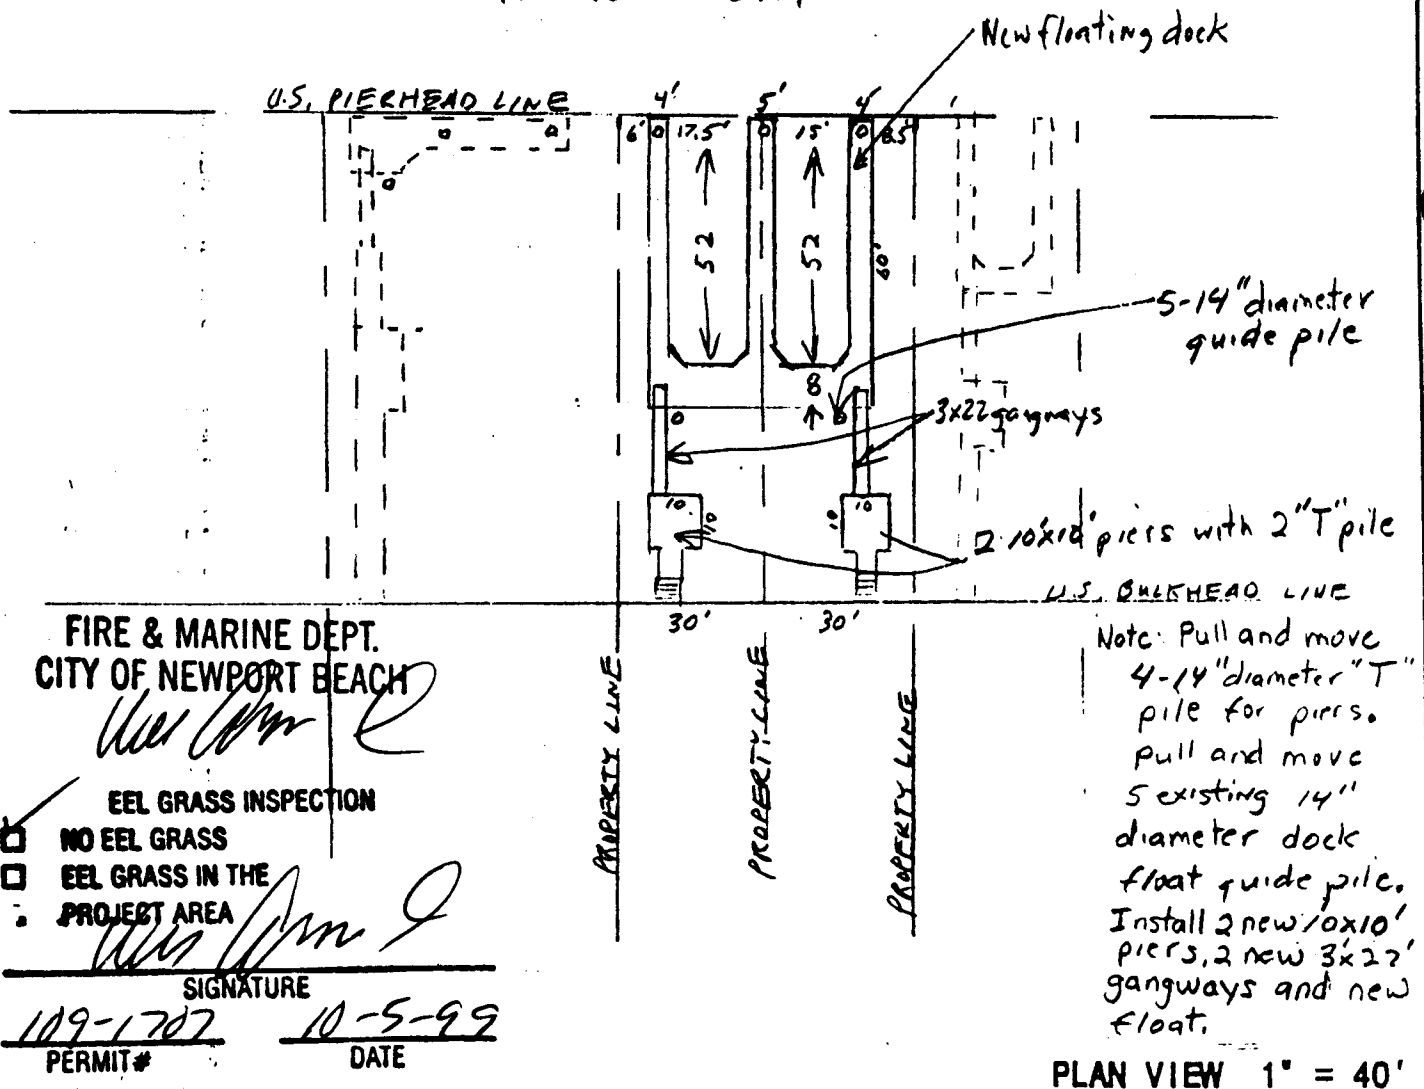 New floating dock
U.S. PIERHEAD LINE
4' 5' 4'
6' 17.5' 15' 8.5'
52 52
60'
5-14" diameter
guide pile
8
3x22 gangways
10 10
10 10
2 10'x10' piers with 2 "T" pile
U.S. BULKHEAD LINE
30' 30'
PROPERTY LINE
PROPERTY LINE
PROPERTY LINE
FIRE & MARINE DEPT.
CITY OF NEWPORT BEACH
EEL GRASS INSPECTION
NO EEL GRASS
EEL GRASS IN THE
PROJECT AREA
SIGNATURE
109-1707 10-5-99
PERMIT# DATE
Note: Pull and move
4-14" diameter "T"
pile for piers.
Pull and move
5 existing 14"
diameter dock
float guide pile.
Install 2 new 10x10'
piers, 2 new 3'x22'
gangways and new
float.
PLAN VIEW 1" = 40'